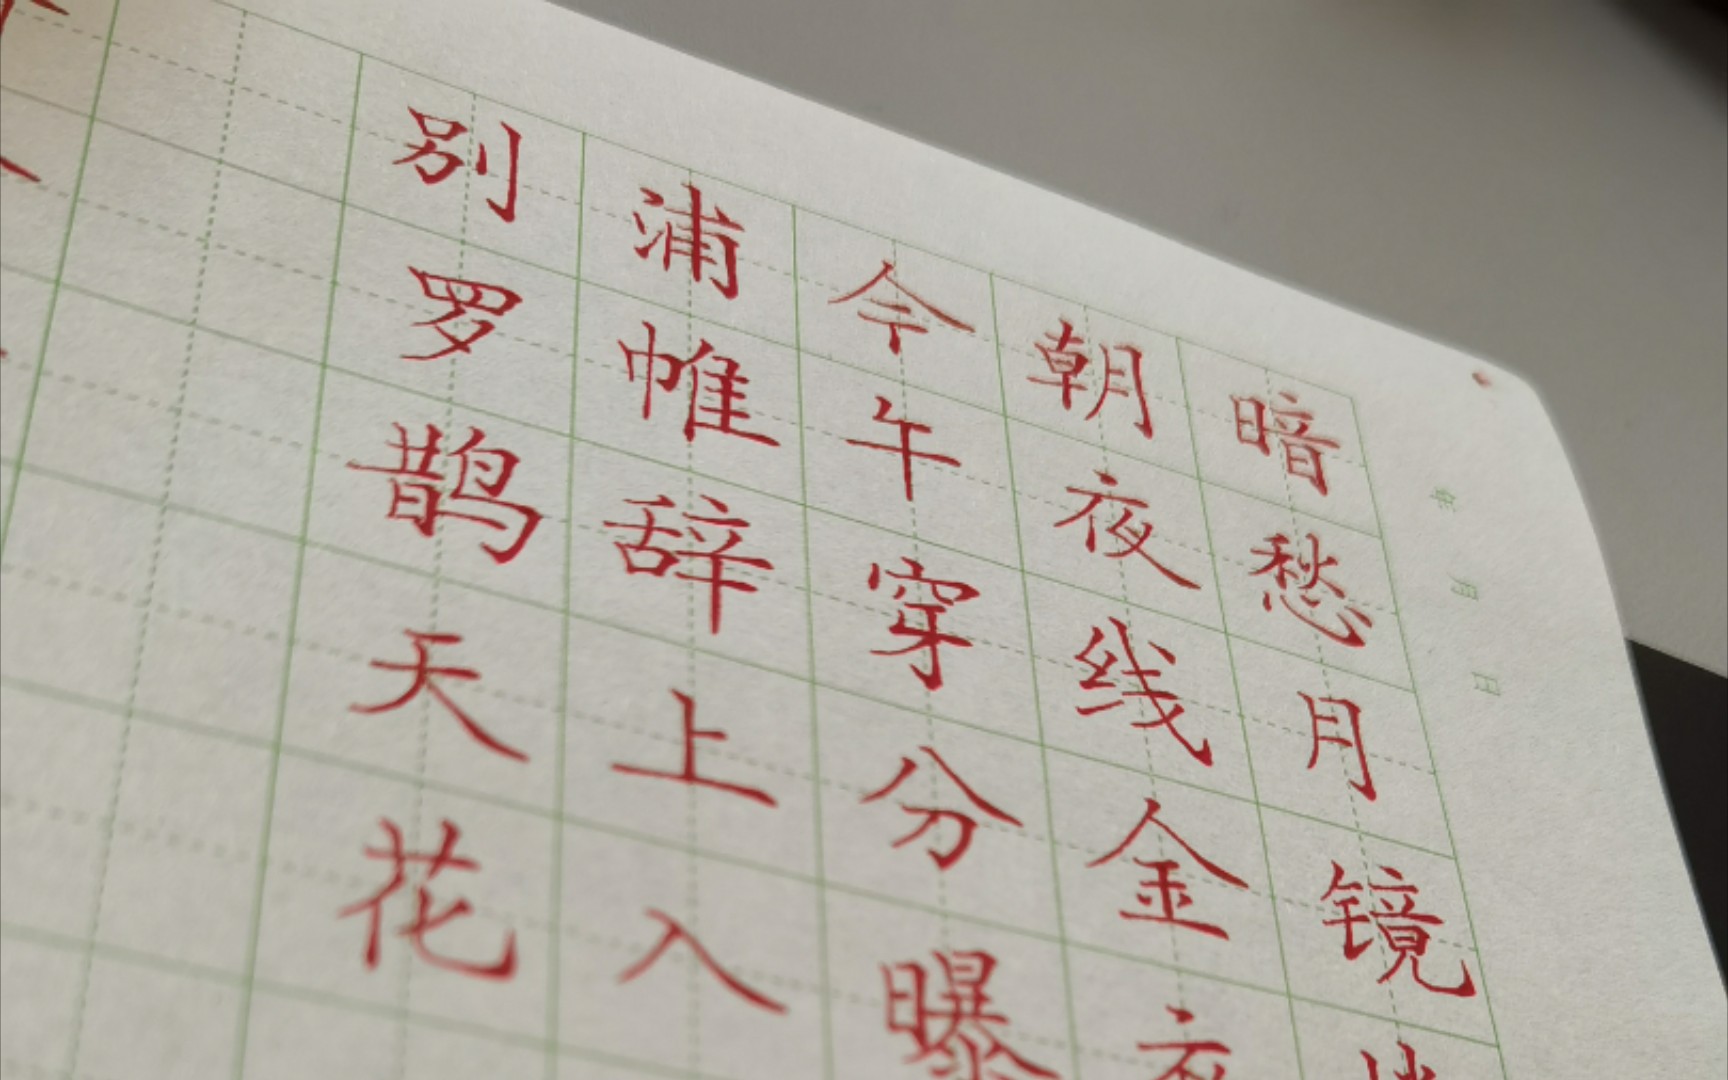 别浦今朝暗
罗帷午夜愁
鹊辞穿线月
天上分金镜
花入曝
年 月 日